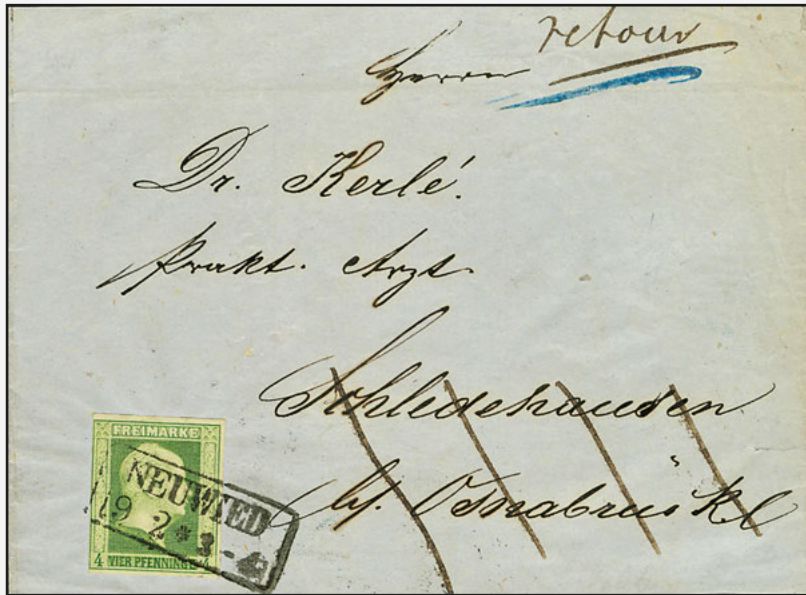 retour
Herrn
Dr. Kerlé.
prakt. Arzt.
Schledehausen
bf. Osnabrück
FREIMARKE
NEUWIED
19 2 * 3 - 4
4 VIER PFENNINGE 4